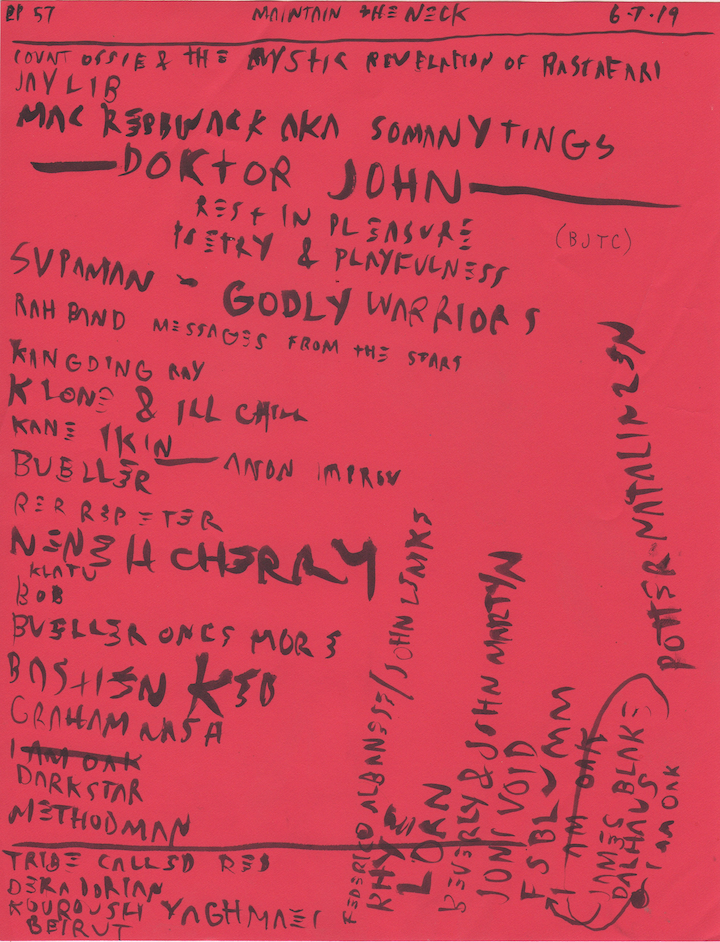 EP 57 MAINTAIN THE NECK 6-7-19
COUNT OSSIE & THE MYSTIC REVELATION OF RASTAFARI
JAYLIB
MAC REBBWACK AKA SOMANYTINGS
DOKTOR JOHN
REST IN PLEASURE
POETRY & PLAYFULNESS
(BJTC)
SUPAMAN - GODLY WARRIORS
RAH BAND MESSAGES FROM THE STARS
KANGDING RAY
KLONE & ILL CHILL
KANE IKIN — ANON IMPROV
BUELLER
RER REPETER
NENEH CHERRY
KLATU
BOB
BUELLER ONCS MORE
BASTIEN KEB
GRAHAM NASH
I AM OAK
DARKSTAR
METHODMAN
TRIBE CALLED RED
DERADORIAN
KOUROUSH YAGHMAEI
BEIRUT
FEDERICO ALBANESE/JOHN LEMKE
RHYE
LORN
BEVERLY & JOHN MARTYN
JONI VOID
FSBLUMM
I AM OAK
JAMES BLAKE
DALHAUS
I AM OAK
POTTER-NATALIN2EN